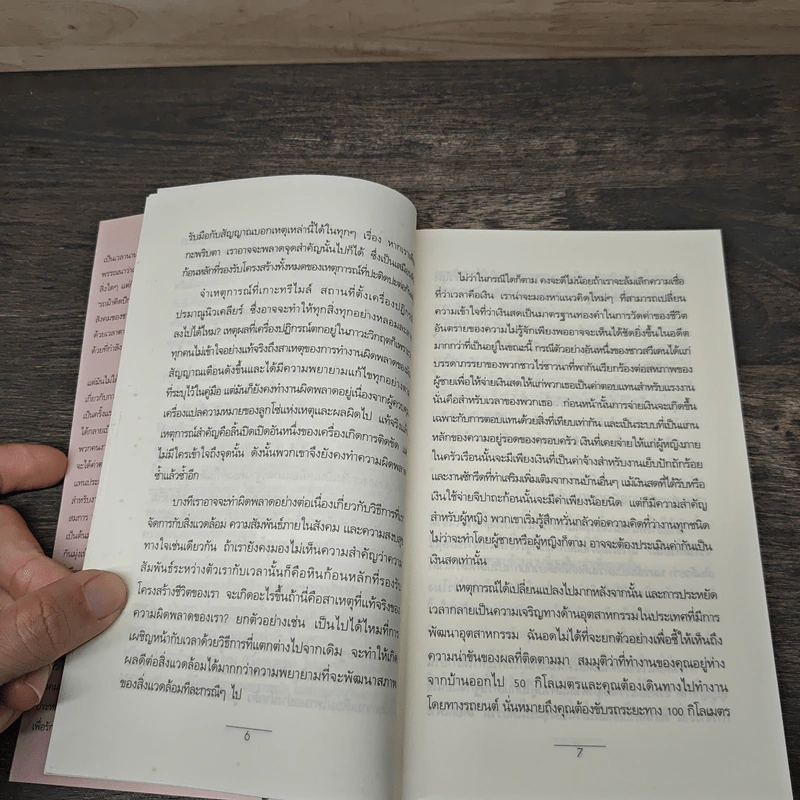 เป็นเวลานาน
พรรณนาว่า
สิ่งใดๆ แต่
รถม้าติดปีก
สังคมของช
ด้วยเวลาตา
ด้วยที่กำลัง
แต่มันไม่ได้
เกี่ยวกับการ
เป็นครั้งแรก
ได้กลายเป็น
พวกคนงา
จะได้ค่าต
แทนประ
สำหรับงา
สมการ
เป็นต้นม
กันมุ่งเร
รับมือกับสัญญาณบอกเหตุเหล่านี้ได้ในทุกๆ เรื่อง หากเราเผลอ
กะพริบตา เราอาจจะพลาดจุดสำคัญนั้นไปก็ได้ ซึ่งเป็นเสมือนหิน
ก้อนหลักที่รองรับโครงสร้างทั้งหมดของเหตุการณ์ที่ปะติดปะต่อกัน
จำเหตุการณ์ที่เกาะทรีไมล์ สถานที่ตั้งเครื่องปฏิกรณ์
ปรมาณูนิวเคลียร์ ซึ่งอาจจะทำให้ทุกสิ่งทุกอย่างหลอมละลาย
ลงไปได้ไหม? เหตุผลที่เครื่องปฏิกรณ์ตกอยู่ในภาวะวิกฤตก็เพราะว่า
ทุกคนไม่เข้าใจอย่างแท้จริงถึงสาเหตุของการทำงานผิดพลาดของมัน
สัญญาณเตือนดังขึ้นและได้มีความพยายามแก้ไขทุกอย่างตาม
ที่ระบุไว้ในคู่มือ แต่มันก็ยังคงทำงานผิดพลาดอยู่เนื่องจากผู้ควบคุม
เครื่องแปลความหมายของลูกโซ่แห่งเหตุและผลผิดไป แท้จริงแล้ว
เหตุการณ์สำคัญคือลิ้นปิดเปิดอันหนึ่งของเครื่องเกิดการติดขัด และ
ไม่มีใครเข้าใจถึงจุดนั้น ดังนั้นพวกเขาจึงยังคงทำความผิดพลาด
ซ้ำแล้วซ้ำอีก
บางทีเราอาจจะทำผิดพลาดอย่างต่อเนื่องเกี่ยวกับวิธีการที่เรา
จัดการกับสิ่งแวดล้อม ความสัมพันธ์ภายในสังคม และความสงบสุข
ทางใจเช่นเดียวกัน ถ้าเรายังคงมองไม่เห็นความสำคัญว่าความ
สัมพันธ์ระหว่างตัวเรากับเวลานั้นก็คือหินก้อนหลักที่รองรับ
โครงสร้างชีวิตของเรา จะเกิดอะไรขึ้นถ้านี่คือสาเหตุที่แท้จริงของ
ความผิดพลาดของเรา? ยกตัวอย่างเช่น เป็นไปได้ไหมที่การ
เผชิญหน้ากับเวลาด้วยวิธีการที่แตกต่างไปจากเดิม จะทำให้เกิด
ผลดีต่อสิ่งแวดล้อมได้มากกว่าความพยายามที่จะพัฒนาสภาพ
ของสิ่งแวดล้อมทีละกรณีๆ ไป
6
ไม่ว่าในกรณีใดก็ตาม คงจะดีไม่น้อยถ้าเราจะล้มเลิกความเชื่อ
ที่ว่าเวลาคือเงิน เราน่าจะมองหาแนวคิดใหม่ๆ ที่สามารถเปลี่ยน
ความเข้าใจที่ว่าเงินสดเป็นมาตรฐานทองคำในการวัดค่าของชีวิต
อันตรายของความไม่รู้จักเพียงพออาจจะเห็นได้ชัดยิ่งขึ้นในอดีต
มากกว่าที่เป็นอยู่ในขณะนี้ กรณีตัวอย่างอันหนึ่งของชาวสวีเดนได้แก่
บรรดาภรรยาของพวกชาวไร่ชาวนาที่พากันเรียกร้องต่อสหภาพของ
ผู้ชายเพื่อให้จ่ายเงินสดให้แก่พวกเธอเป็นค่าตอบแทนสำหรับแรงงาน
นั่นคือสำหรับเวลาของพวกเธอ ก่อนหน้านั้นการจ่ายเงินจะเกิดขึ้น
เฉพาะกับการตอบแทนด้วยสิ่งที่เทียบเท่ากัน และเป็นระบบที่เป็นแกน
หลักของความอยู่รอดของครอบครัว เงินที่เคยจ่ายให้แก่ผู้หญิงภาย
ในครัวเรือนนั้นจะมีเพียงเงินที่เป็นค่าจ้างสำหรับงานเย็บปักถักร้อย
และงานซักรีดที่ทำเสริมเพิ่มเติมจากงานบ้านอื่นๆ แม้เงินสดที่ได้รับหรือ
เงินใช้จ่ายจิปาถะก้อนนั้นจะมีค่าเพียงน้อยนิด แต่ก็มีความสำคัญ
สำหรับผู้หญิง พวกเขาเริ่มรู้สึกหวั่นกลัวต่อความคิดที่ว่างานทุกชนิด
ไม่ว่าจะทำโดยผู้ชายหรือผู้หญิงก็ตาม อาจจะต้องประเมินค่ากันเป็น
เงินสดเท่านั้น
เหตุการณ์ได้เปลี่ยนแปลงไปมากหลังจากนั้น และการประหยัด
เวลากลายเป็นความเจริญทางด้านอุตสาหกรรมในประเทศที่มีการ
พัฒนาอุตสาหกรรม ฉันอดไม่ได้ที่จะยกตัวอย่างเพื่อชี้ให้เห็นถึง
ความน่าขันของผลที่ติดตามมา สมมุติว่าที่ทำงานของคุณอยู่ห่าง
จากบ้านออกไป 50 กิโลเมตรและคุณต้องเดินทางไปทำงาน
โดยทางรถยนต์ นั่นหมายถึงคุณต้องขับรถระยะทาง 100 กิโลเมตร
7